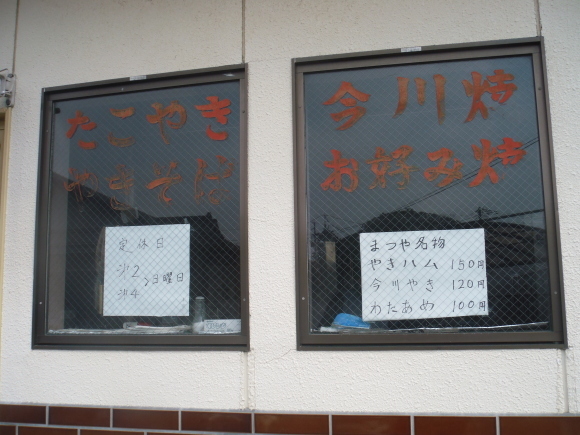 たこやき
やきそば
定休日
第2、日曜日
第4
今川焼
お好み焼
まつや名物
やきハム 150円
今川やき 120円
わたあめ 100円